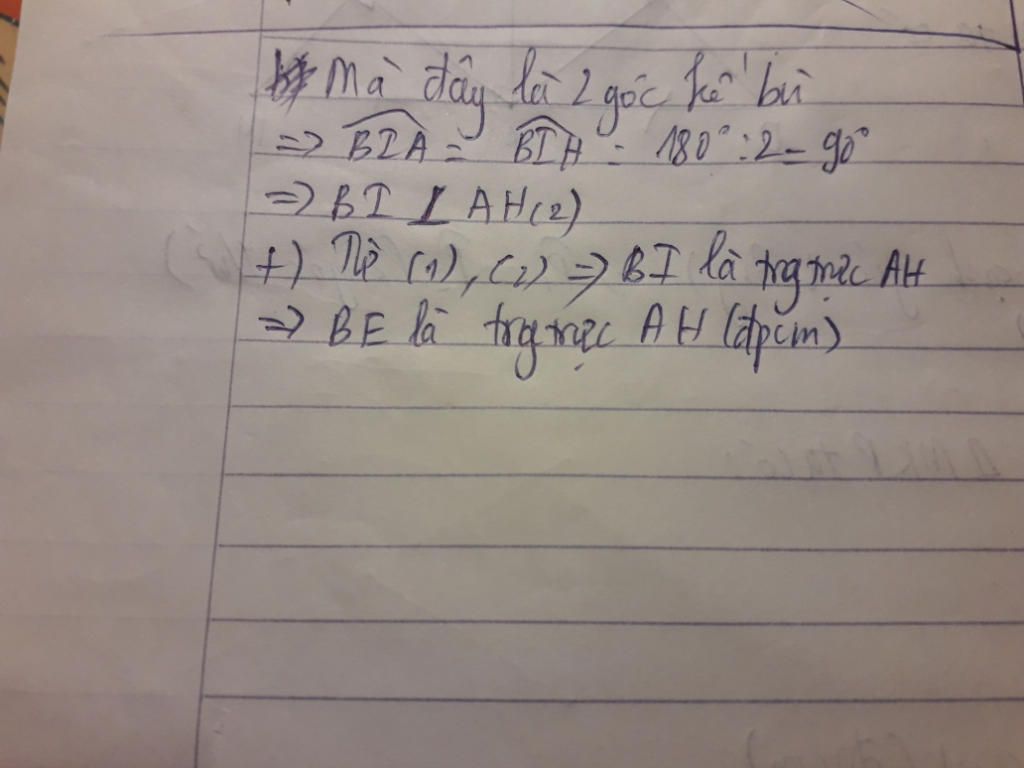 Mà đây là 2 góc kề bù
=> BIA = BIH = 180° : 2 = 90°
=> BI ⊥ AH (2)
+) Từ (1), (2) => BI là trg trực AH
=> BE là trg trực AH (đpcm)